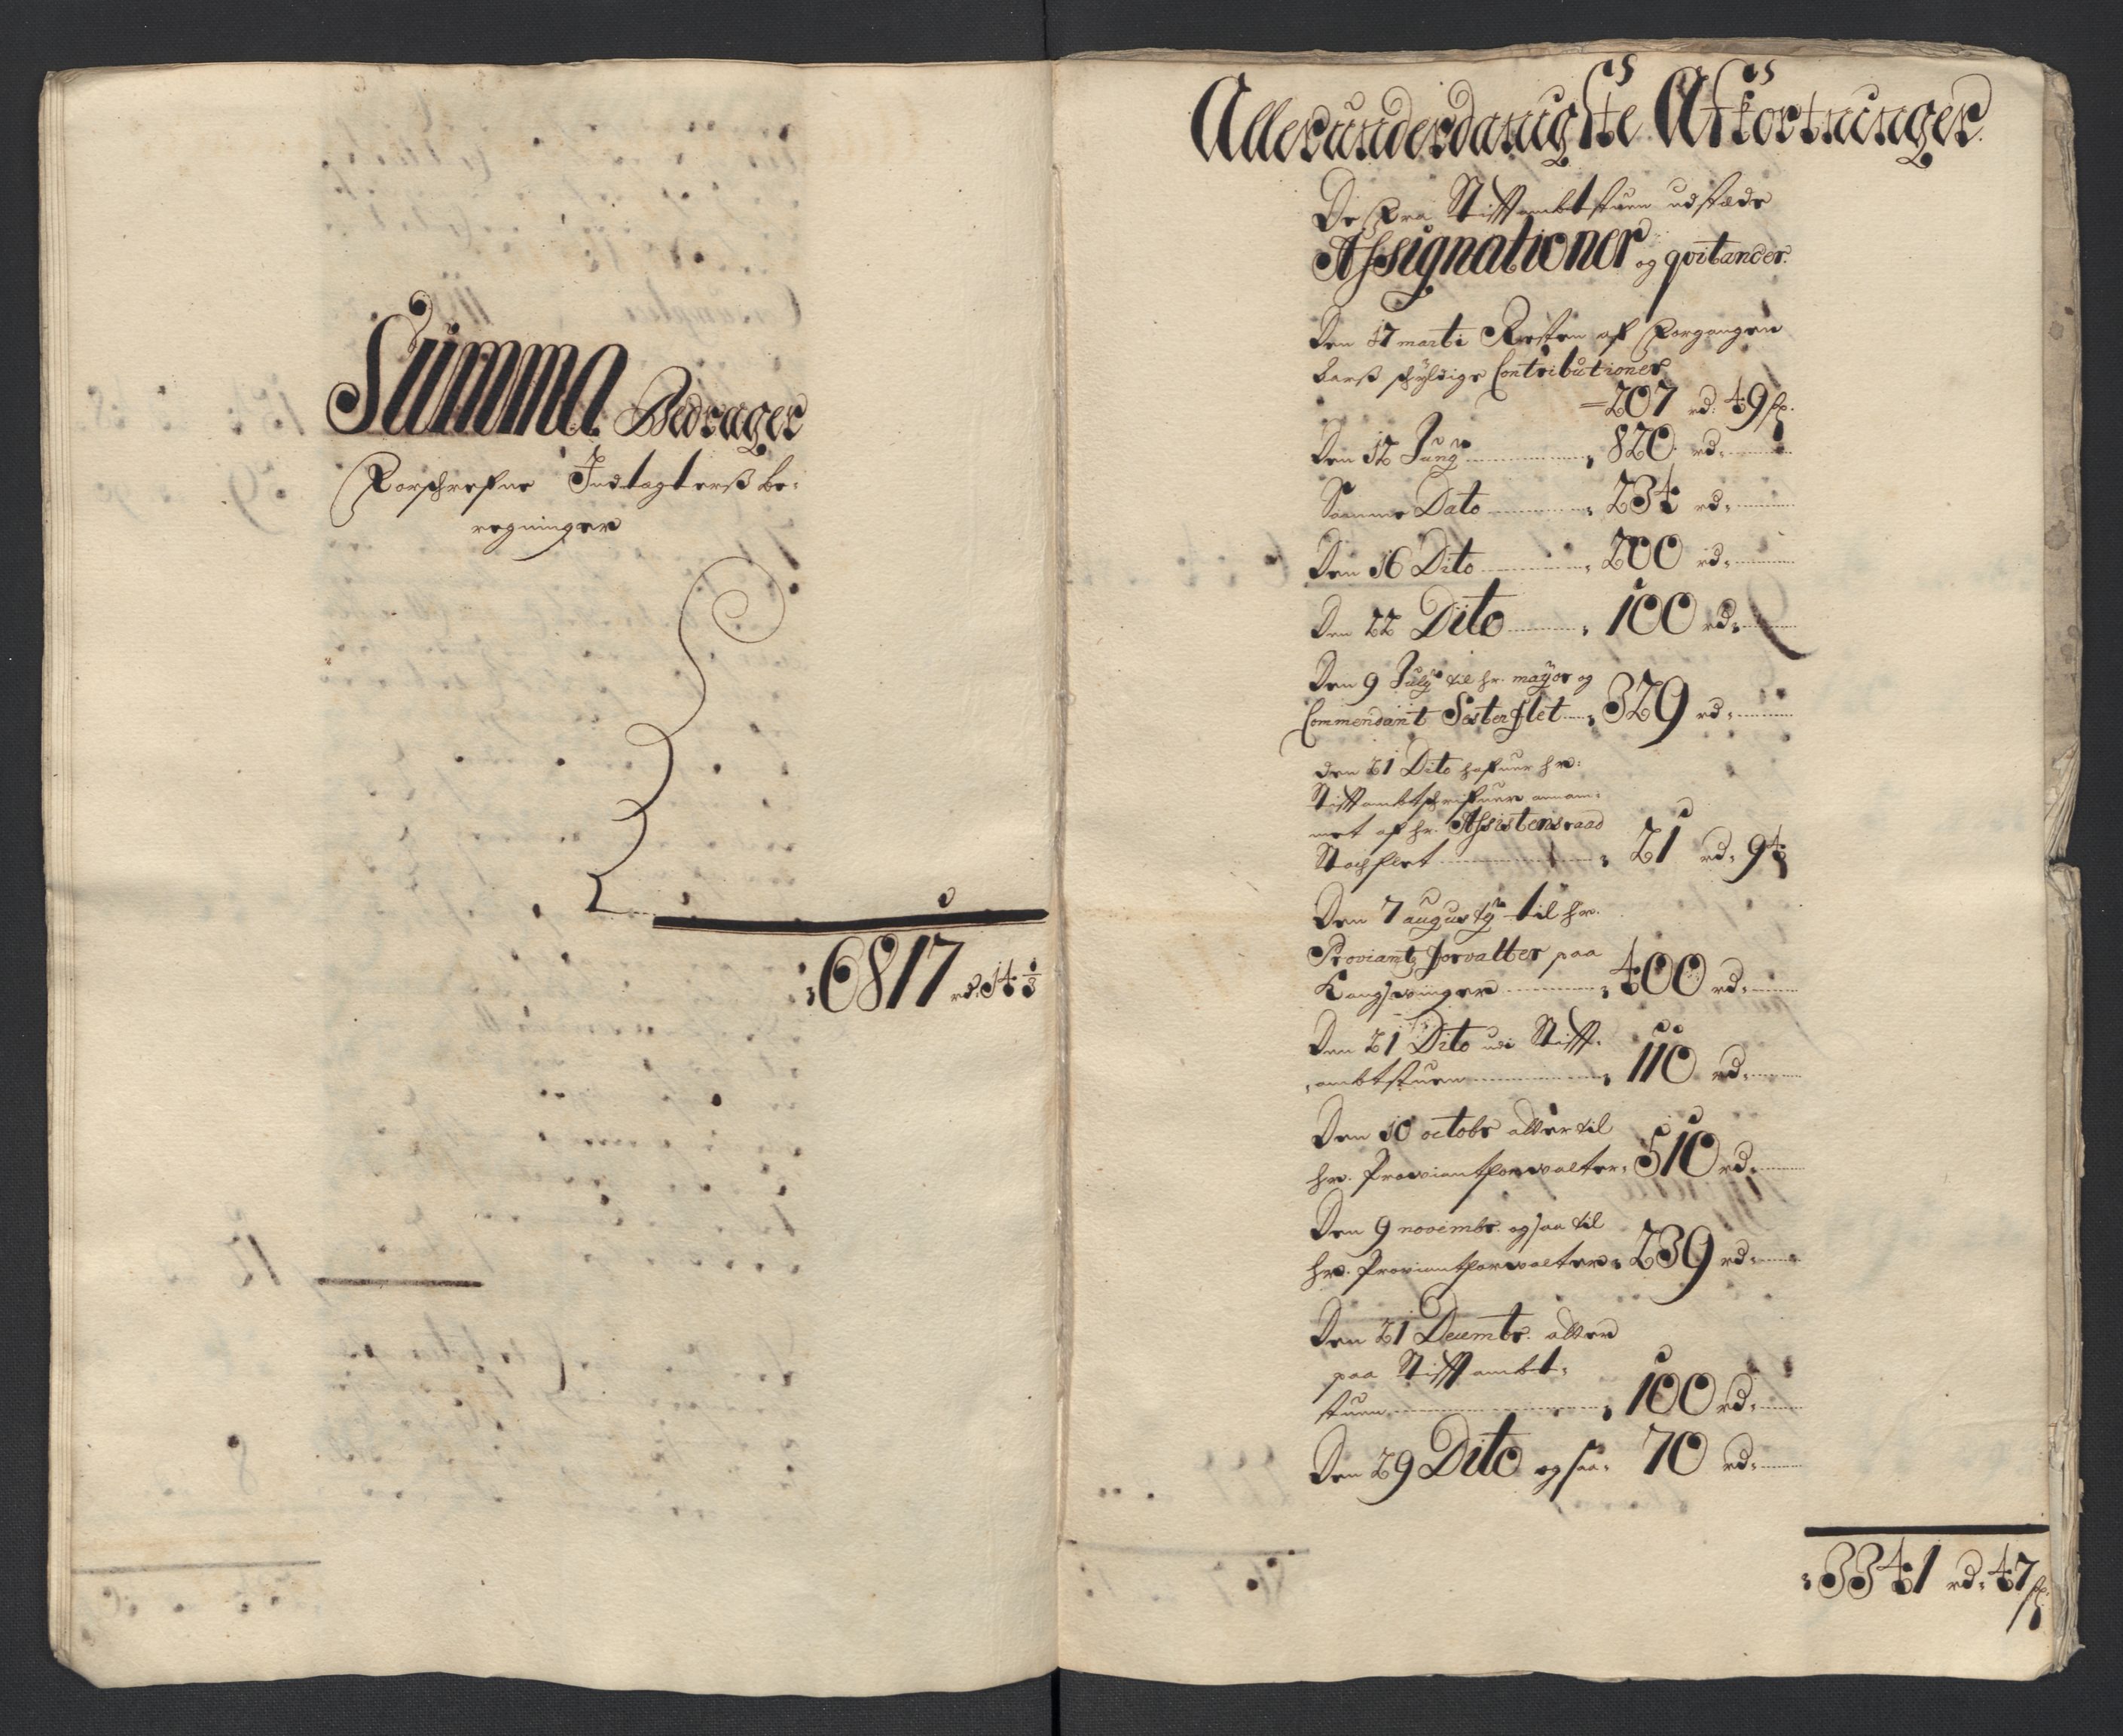 Summa Bedrager
Forschrefne Indtægterß be:
regninger
6817 rd: 14 1/3
Allerunderdanigste Afkortninger
De Fra Stiftambtstuen udstæde
Assignationer og qvitancer
Den 17 marti Resten af Forgangen
Aarß schyldige Contributioner
207 rd: 49 s.
Den 12 Juny 820 rd:
Samme Dato 234 rd:
Den 16 Dito 200 rd:
Den 22 Dito 100 rd:
Den 9 July til hr. mayor og
Commendant Sesterflet 329 rd:
den 21 Dito hafuer hr:
Stiftambtschrifuer annam:
met af hr. Assistensraad
Stochflet 21 rd: 94
Den 7 augusty til hr.
Proviantz forvalter paa
Kongsvinger 400 rd:
Den 21 Dito udi Stift:
ambtstuen 110 rd:
Den 10 octobr atter til
hr. Proviantforvalter 510 rd:
Den 9 novembr. ogsaa til
hr. Proviantforvalter 239 rd:
Den 21 Decembr. atter
paa Stiftambt:
stuen 100 rd:
Den 29 Dito ogsaa 70 rd:
3341 rd: 47 s: